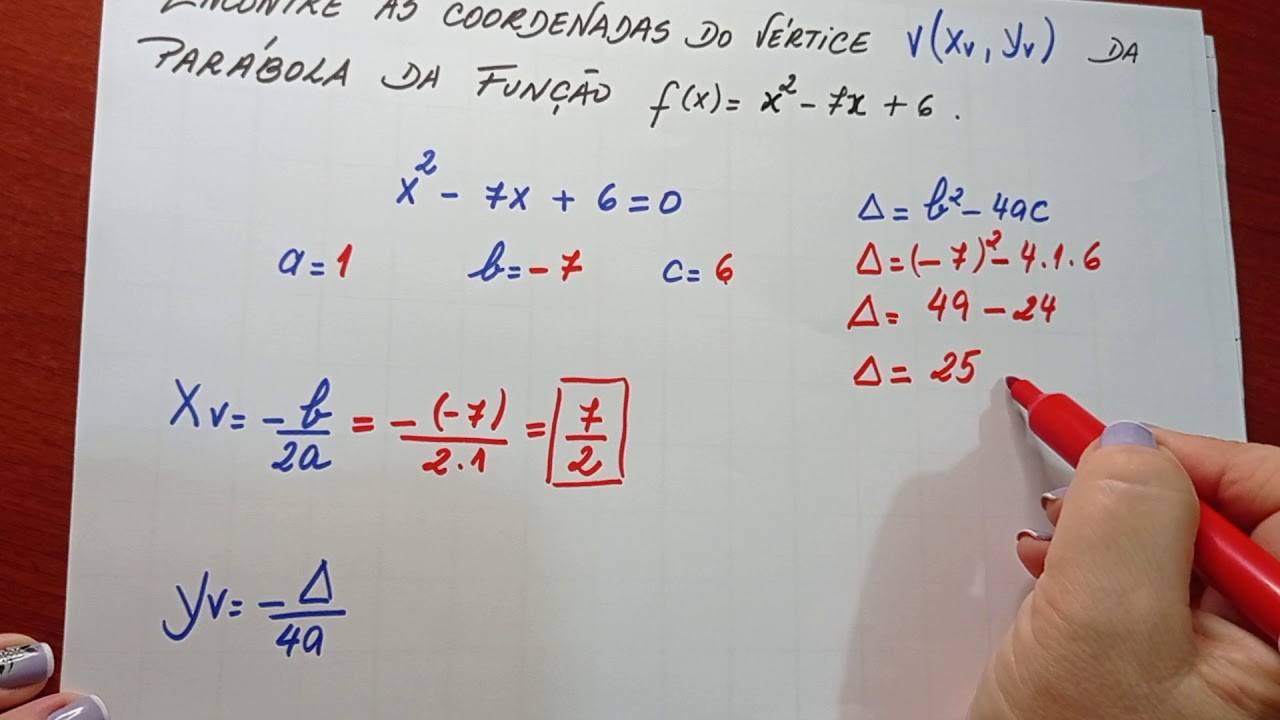 ENCONTRE AS COORDENADAS DO VÉRTICE V(Xv, Yv) DA
PARÁBOLA DA FUNÇÃO f(x) = x² - 7x + 6.
x² - 7x + 6 = 0
a = 1 b = -7 c = 6
Δ = b² - 4ac
Δ = (-7)² - 4.1.6
Δ = 49 - 24
Δ = 25
Xv = -b/2a = -(-7)/2.1 = 7/2
yv = -Δ/4a